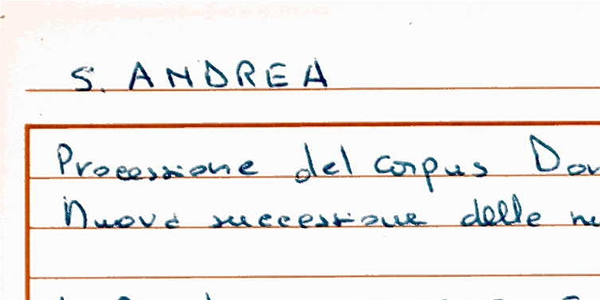 S. ANDREA
Processione del corpus Dom
Nuova successione delle